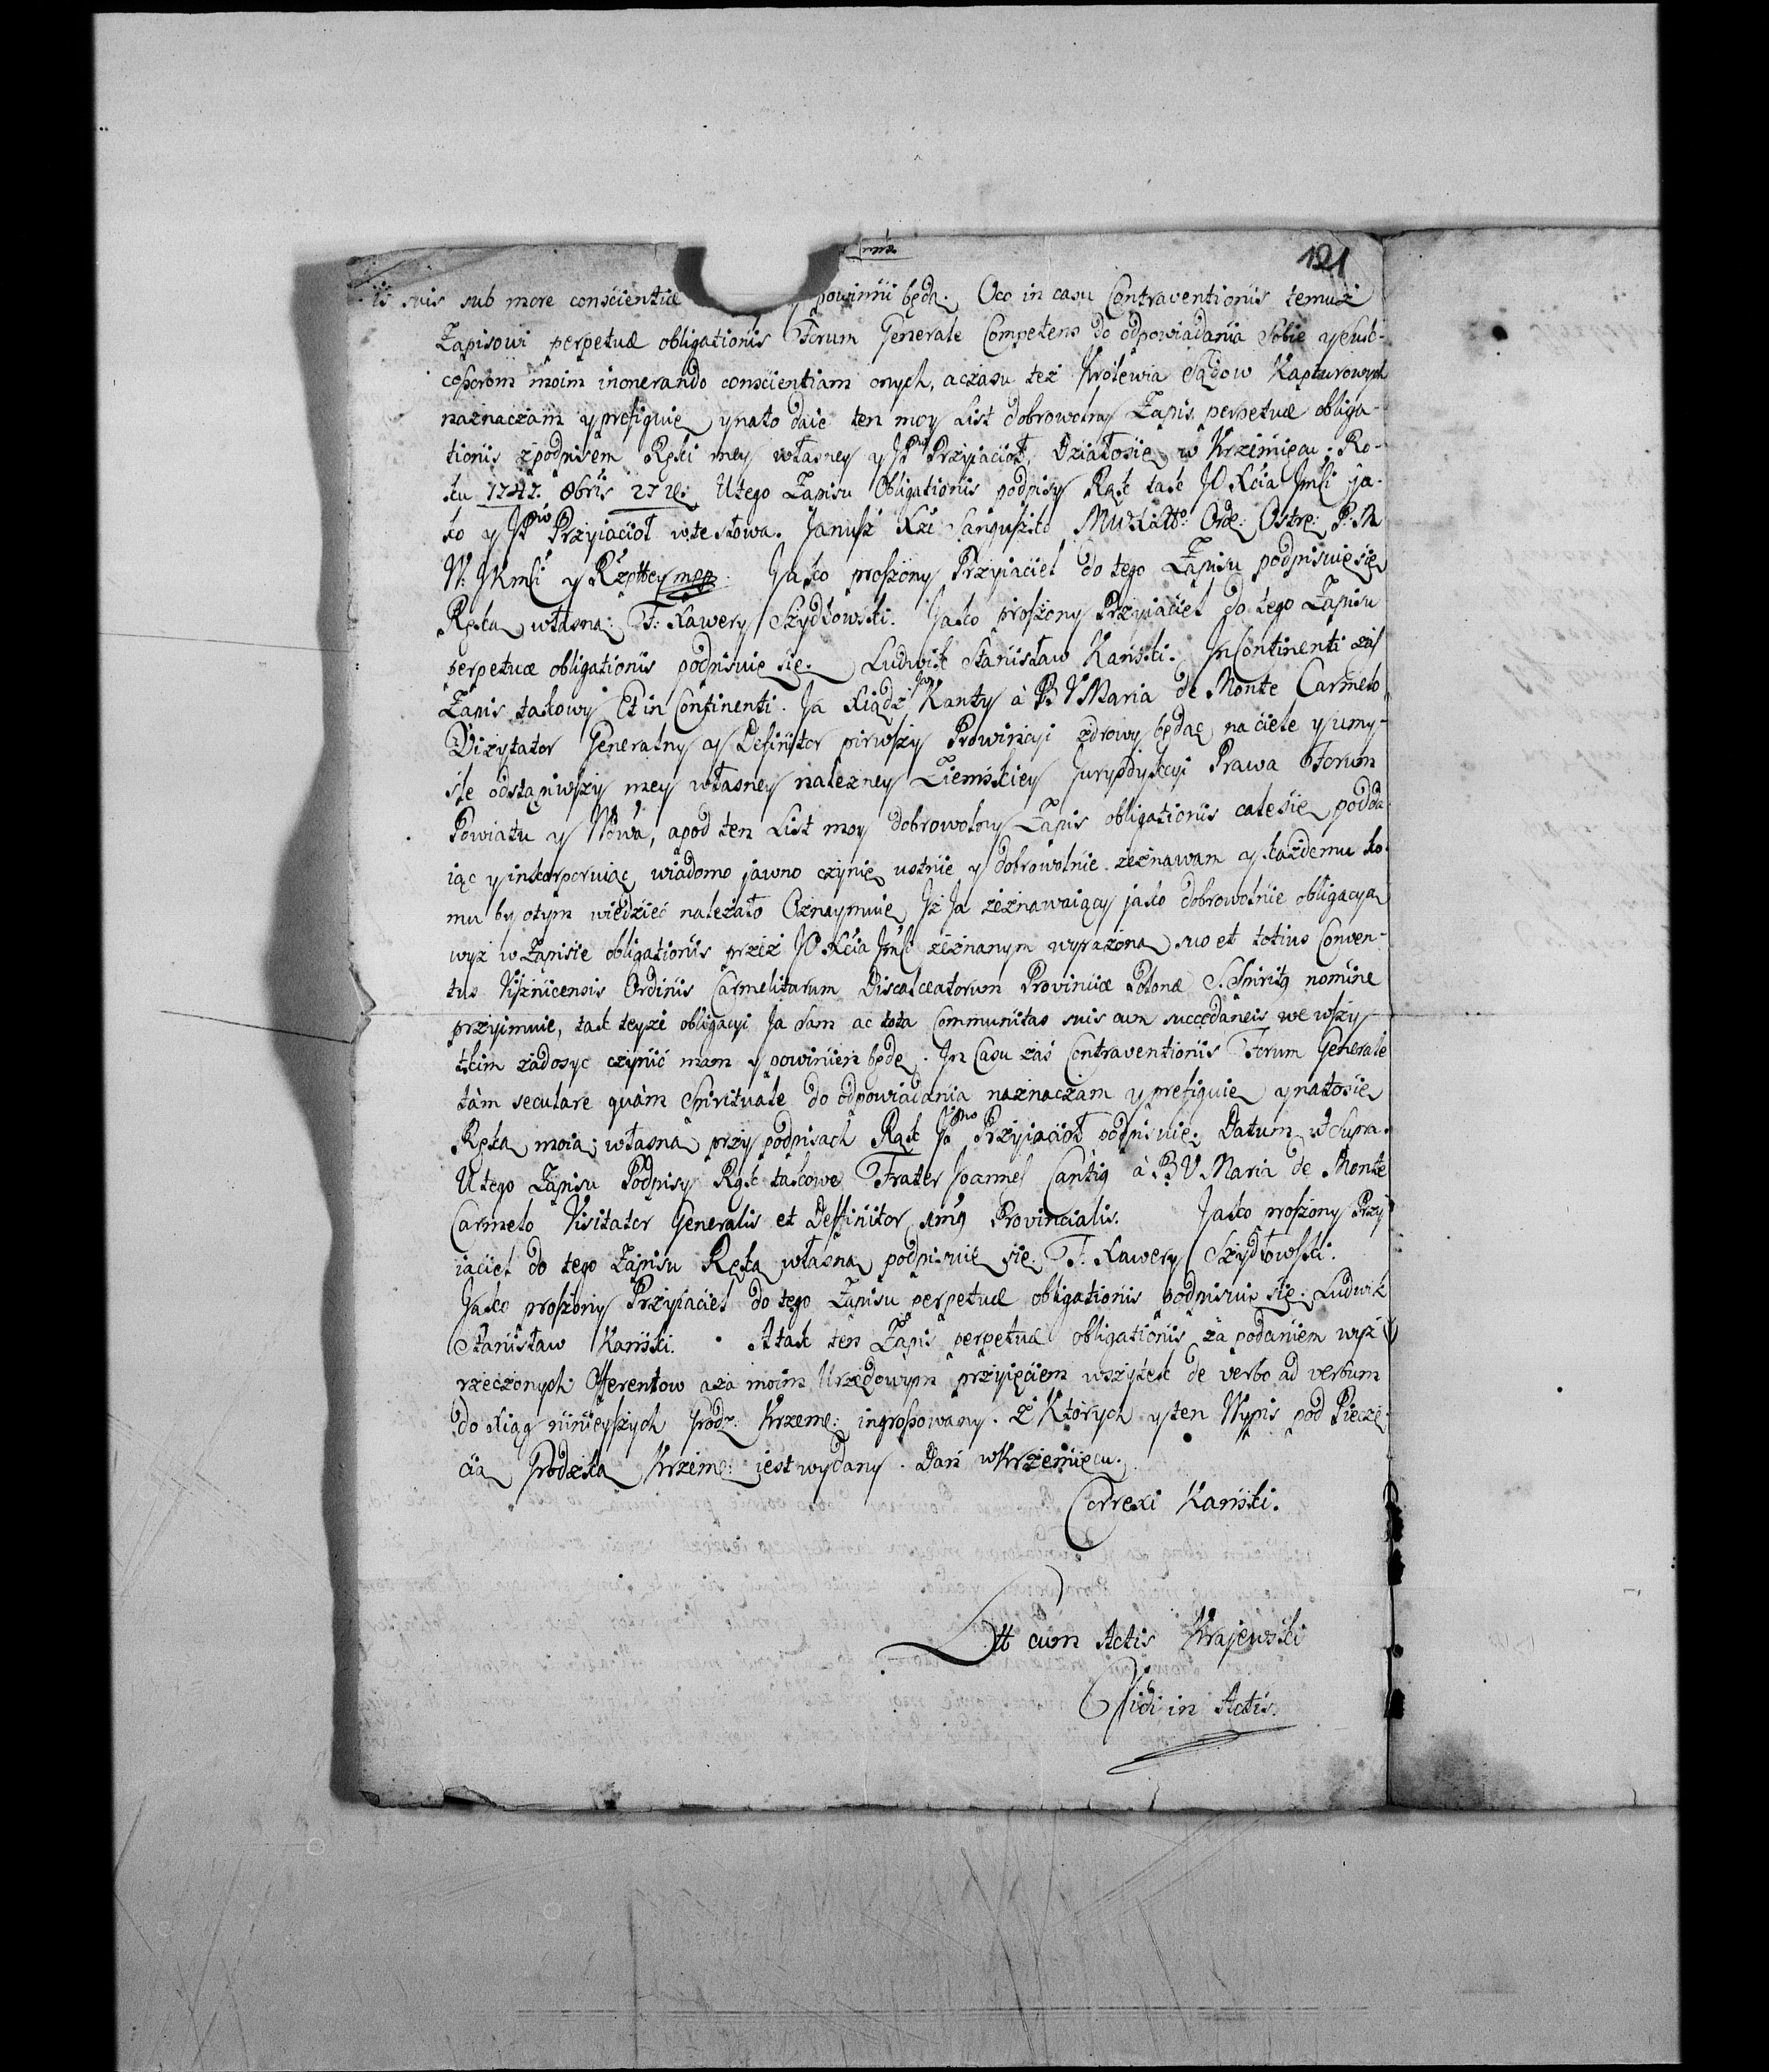 121
is suis sub more conscientiæ powinni będą. Oco in casu Contraventionis temuż
Zapisowi perpetuæ obligationis Forum Generale Competens do odpowiadania Sobie ysuk-
cessorom moim inonerando conscientiam onych, aczasu też Krolewia Sądow Kapturowych
naznaczam yprefiguię ynato daię ten moy List dobrowolny Zapis perpetuæ obliga-
tionis zpodpisem Ręki mey własney y Przyiacioł, Działosię w Krzemięcu Ro-
ku 1747. 8bris 27 U tego Zapisu Obligationis podpisy Rąk tak JO Xcia Jmści ja-
ko y Przyiacioł wte słowa. Janusz Xże Sanguszko Ord: Ostr: P: M
W: JKmści y Rzptey mpp. Jako proszony Przyiaciel do tego Zapisu podpisuię się
Ręką własną: F: Xawery Szydłowski. Jako proszony Przyiaciel do tego Zapisu
perpetuæ obligationis podpisuię się. Ludwik Stanisław Kański. In Continenti zaś
Zapis takowy Et in Continenti. Ja Xiądz Jan Kanty à B V Maria de Monte Carmelo
Vizytator Generalny y Definitor pirwszy Prowincyi zdrowy będąc na ciele y umy-
śle odstąpiwszy mey własney należney Ziemskiey Juryzdykcyi Prawa Forum
Powiatu y Wowa, apod ten List moy dobrowolny Zapis obligationis całesię podda-
iąc y inkorporuiąc wiadomo jawno czynię ustnie y dobrowolnie zeznawam y każdemu ko-
mu by otym wiedzieć należało Oznaymuię Iż Ja zeznawaiący jako dobrowolnie obligacyą
wyż w Zapisie obligationis przez JO Xcia Jmści zeznanym wyrażoną suo et totius Conven-
tus Viśznicensis Ordinis Carmelitarum Discalceatorum Provinciæ Polonæ S. Spiritus nomine
przyimuię, tak teyże obligacyi Ja sam ac tota Communitas suis cum succedaneis we wszy-
tkim zadosyc czynić mam y powinien będę. In Casu zaś Contraventionis Forum Generale
tàm seculare quàm Spirituale do odpowiadania naznaczam y prefiguię ynatosię
Ręką moią własną przy podpisach Rąk Przyiacioł podpisuię. Datum ut Supra.
U tego Zapisu Podpisy Rąk takowe Frater Joannes Cantius à B V Maria de Monte
Carmelo Visitator Generalis et Deffinitor 1mus Provincialis. Jako proszony Przy-
iaciel do tego Zapisu Ręką własną podpisuię się. F. Xawery Szydłowski.
Jako proszony Przyiaciel do tego Zapisu perpetuæ obligationis podpisuię się. Ludwik
Stanisław Kański. A tak ten Zapis perpetuæ obligationis za podaniem wyż
rzeczonych Offerentow aza moim Urzędowym przyięciem wszytek de verbo ad verbum
do Xiąg ninieyszych Grodz: Krzeme: ingrossowany. Z Których y ten Wypis pod Pieczę-
cią Grodzką Krzeme: jest wydany. Dań w Krzemięcu.
Correxi Kański.
Ltt cum Actis Krajewski
Vidi in Actis.